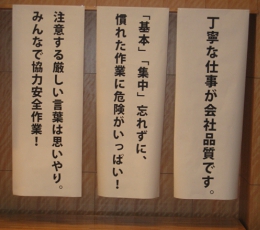 丁寧な仕事が会社品質です。
「基本」「集中」忘れずに、
慣れた作業に危険がいっぱい！
注意する厳しい言葉は思いやり。
みんなで協力安全作業！